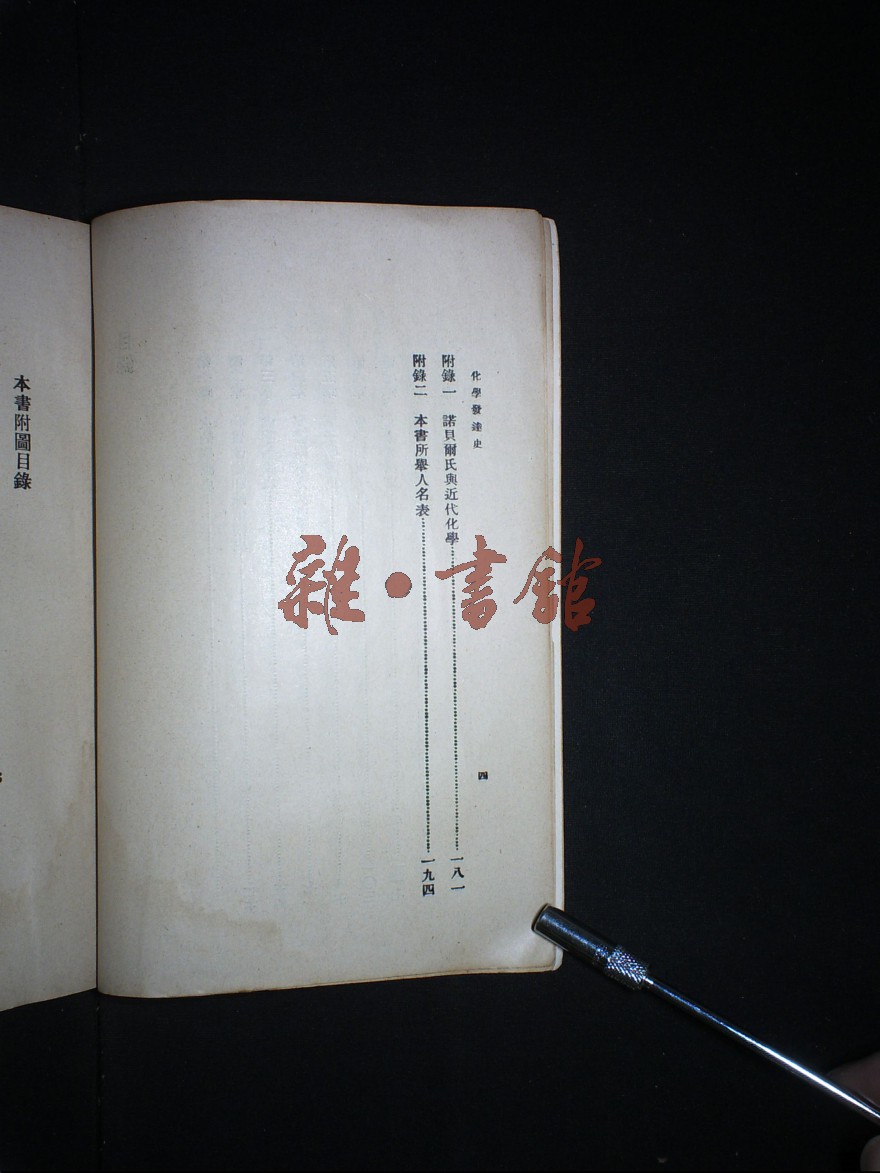 化學發達史
四
附錄一 諾貝爾氏與近代化學……一八一
附錄二 本書所舉人名表……一九四
本書附圖目錄
雜·書館